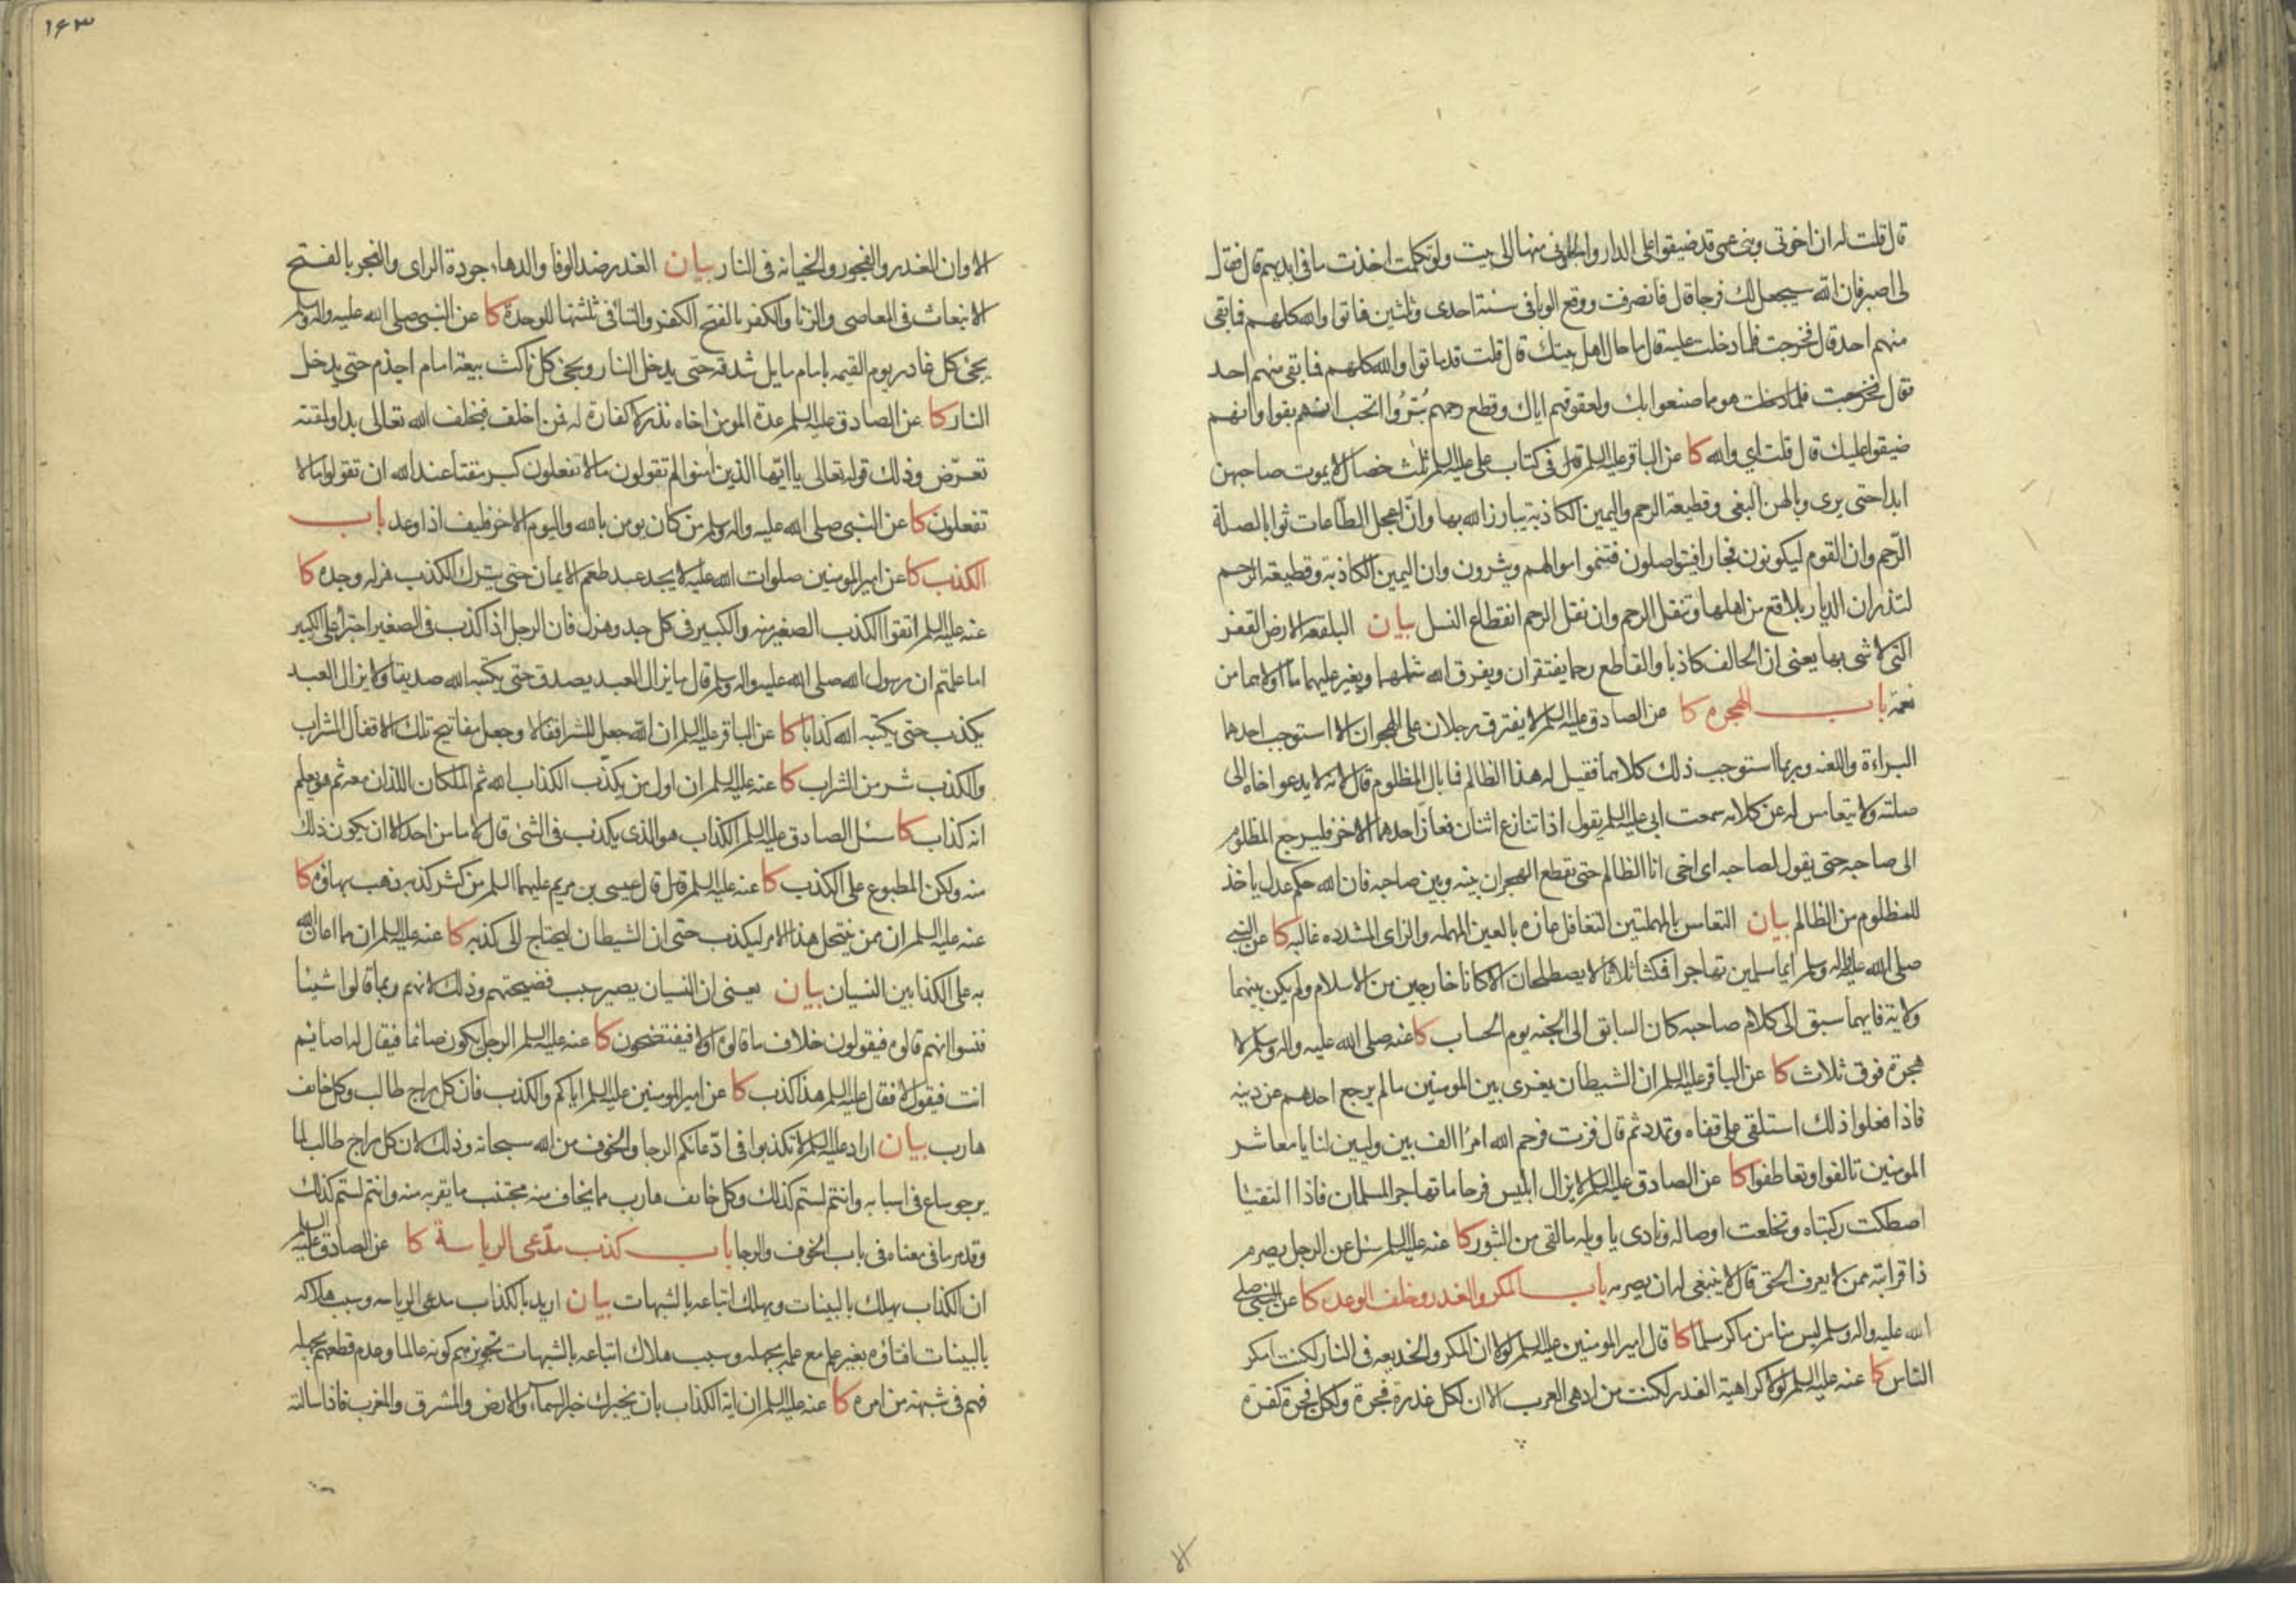 قال قلت له ان اخوتی وبنی عمی قد ضیقوا علی الدار والجاونی منها الی بیت ولو تکلمت اخذت ما فی ایدیهم قال فقال
لی اصبر فان الله سیجعل لک فرجا قال فانصرفت ووقع الوبا فی سنة احدی وثلثین فماتوا والله کلهم فما بقی
منهم احد قال فخرجت فلما دخلت علیه قال ما حال اهل بیتک قال قلت قد ماتوا والله کلهم فما بقی منهم احد
فقال هو بما صنعوا بک ولعقوقهم ایاک وقطع رحمهم بُتِرُوا اتحب انهم بقوا وانهم
ضیقوا علیک قال قلت ای والله کا عن الباقر علیه السلم قال فی کتاب علی علیه السلم ثلث خصال لا یموت صاحبهن
ابدا حتی یری وبالهن البغی وقطیعة الرحم والیمین الکاذبة یبارز الله بها وانّ اعجل الطّاعات ثوابا لصلة
الرّحم وان القوم لیکونون فجارا فیتواصلون فتنموا اموالهم ویثرون وان الیمین الکاذبة وقطیعة الرحم
لتذران الدیار بلاقع من اهلها وتنقل الرحم وان نقل الرحم انقطاع النسل بیان البلقعه الارض القفر
التی لا شی بها یعنی ان الحالف کاذبا والقاطع رحما یفتقران ویفرق الله شملهما ویغیر علیهما ما اولاهما من
نعمة باب الهجرة کا عن الصادق علیه السلم لا یفترق رجلان علی الهجران الا استوجب احدهما
البراءة واللعنه وربما استوجب ذلک کلاهما فقیل له هذا الظالم فما بال المظلوم قال لانه لا یدعوا اخاه الی
صلته ولا یتعامس له عن کلامه سمعت ابی علیه السلم یقول اذا تنازع اثنان فعازّ احدهما الاخر فلیرجع المظلوم
الی صاحبه حتی یقول لصاحبه ای اخی انا الظالم حتی یقطع الهجران بینه وبین صاحبه فان الله حکم عدل یاخذ
للمظلوم من الظالم بیان التعامس بالمهملتین التغافل عازه بالعین المهمله والزای المشدده غالبه کا عن النبی
صلی الله علیه واله وسلم ایما مسلمین تهاجرا فمکثا ثلاثا لا یصطلحان الا کانا خارجین من الاسلام ولم یکن بینهما
ولایة فایهما سبق الی کلام صاحبه کان السابق الی الجنه یوم الحساب کا عنه صلی الله علیه واله وسلم لا
هجرة فوق ثلاث کا عن الباقر علیه السلم ان الشیطان یغری بین المومنین ما لم یرجع احدهم عن دینه
فاذا فعلوا ذلک استلقی علی قفاه وتمدد ثم قال فزت فرحم الله امرا الف بین ولیین لنا یا معاشر
المومنین تالفوا وتعاطفوا کا عن الصادق علیه السلم لا یزال ابلیس فرحا ما تهاجر المسلمان فاذا التقیا
اصطکت رکبتاه وتخلعت اوصاله ونادی یا ویله ما لقی من الثبور کا عنه علیه السلم سئل عن الرجل یصرم
ذا قرابته ممن لا یعرف الحق قال لا ینبغی له ان یصرمه باب المکر والغدر وخلف الوعد کا عن النبی صلی
الله علیه واله وسلم لیس منا من ماکر مسلما کا قال امیر المومنین علیه السلم لولا ان المکر والخدیعه فی النار لکنت امکر
الناس کا عنه علیه السلم لولا کراهیة الغدر لکنت من ادهی العرب الا ان لکل غدرة فجرة ولکل فجرة کفرة
۱۶۳
الا وان الغدر والفجور والخیانه فی النار بیان الغدر ضد الوفا والدها، جودة الرای والفجر بالفتح
الانبعاث فی المعاصی والزنا والکفر بالفتح الکفر والتا فی ثلثتها للوحدة کا عن النبی صلی الله علیه واله وسلم
یجئ کل غادر یوم القیمه بامام مایل شدقه حتی یدخل النار ویجئ کل ناکث بیعة امام اجذم حتی یدخل
النار کا عن الصادق علیه السلم عدة المومن اخاه نذر لا کفارة له فمن اخلف فبخلف الله تعالی بدا ولمقته
تعرّض وذلک قوله تعالی یا ایّها الذین امنوا لم تقولون ما لا تفعلون کبر مقتا عند الله ان تقولوا ما لا
تفعلون کا عن النبی صلی الله علیه واله وسلم من کان یومن بالله والیوم الاخر فلیف اذا وعد باب
الکذب کا عن امیر المومنین صلوات الله علیه لا یجد عبد طعم الایمان حتی یترک الکذب هزله وجده کا
عنه علیه السلم اتقوا الکذب الصغیر منه والکبیر فی کل جد وهزل فان الرجل اذا کذب فی الصغیر اجترا علی الکبیر
اما علمتم ان رسول الله صلی الله علیه واله وسلم قال ما یزال العبد یصدق حتی یکتبه الله صدیقا ولا یزال العبد
یکذب حتی یکتبه الله کذابا کا عن الباقر علیه السلم ان الله جعل للشر اقفالا وجعل مفاتیح تلک الاقفال الشراب
والکذب شر من الشراب کا عنه علیه السلم ان اول من یکذّب الکذاب الله ثم الملکان اللذان معه ثم هو یعلم
انه کذاب کا سئل الصادق علیه السلم الکذاب هو الذی یکذب فی الشئ قال لا ما من احد الا ان یکون ذلک
منه ولکن المطبوع علی الکذب کا عنه علیه السلم قال قال عیسی بن مریم علیهما السلم من کثر کذبه ذهب بهاؤه کا
عنه علیه السلم ان ممن ینتحل هذا الامر لیکذب حتی ان الشیطان لیحتاج الی کذبه کا عنه علیه السلم ان مما اعان الله
به علی الکذابین النسیان بیان یعنی ان النسیان یصیر سبب فضیحتهم وذلک لانهم ربما قالوا شیئا
فنسوا انهم قالوه فیقولون خلاف ما قالوه اولا فیفتضحون کا عنه علیه السلم الرجل یکون صائما فیقال له اصائم
انت فیقول لا فقال علیه السلم هذا کذب کا عن امیر المومنین علیه السلم ایاکم والکذب فان کل راج طالب وکل خایف
هارب بیان اراد علیه السلم لا تکذبوا فی ادّعائکم الرجا والخوف من الله سبحانه وذلک لان کل راج طالب لما
یرجو ساع فی اسبابه وانتم لستم کذلک وکل خایف هارب مما یخاف منه مجتنب ما یقربه منه وانتم لستم کذلک
وقد مر ما فی معناه فی باب الخوف والرجا باب کذب مدّعی الریاسة کا عن الصادق علیه السلم
ان الکذاب یهلک بالبینات ویهلک اتباعه بالشبهات بیان ارید بالکذاب مدعی الریاسه وسبب هلاکه
بالبینات افتاؤه بغیر علم مع علمه بجهله وسبب هلاک اتباعه بالشبهات تجویزهم کونه عالما وعدم قطعهم بجهله
فهم فی شبهة من امره کا عنه علیه السلم ان ایة الکذاب بان یخبرک خبر السماء والارض والمشرق والمغرب فاذا سالته